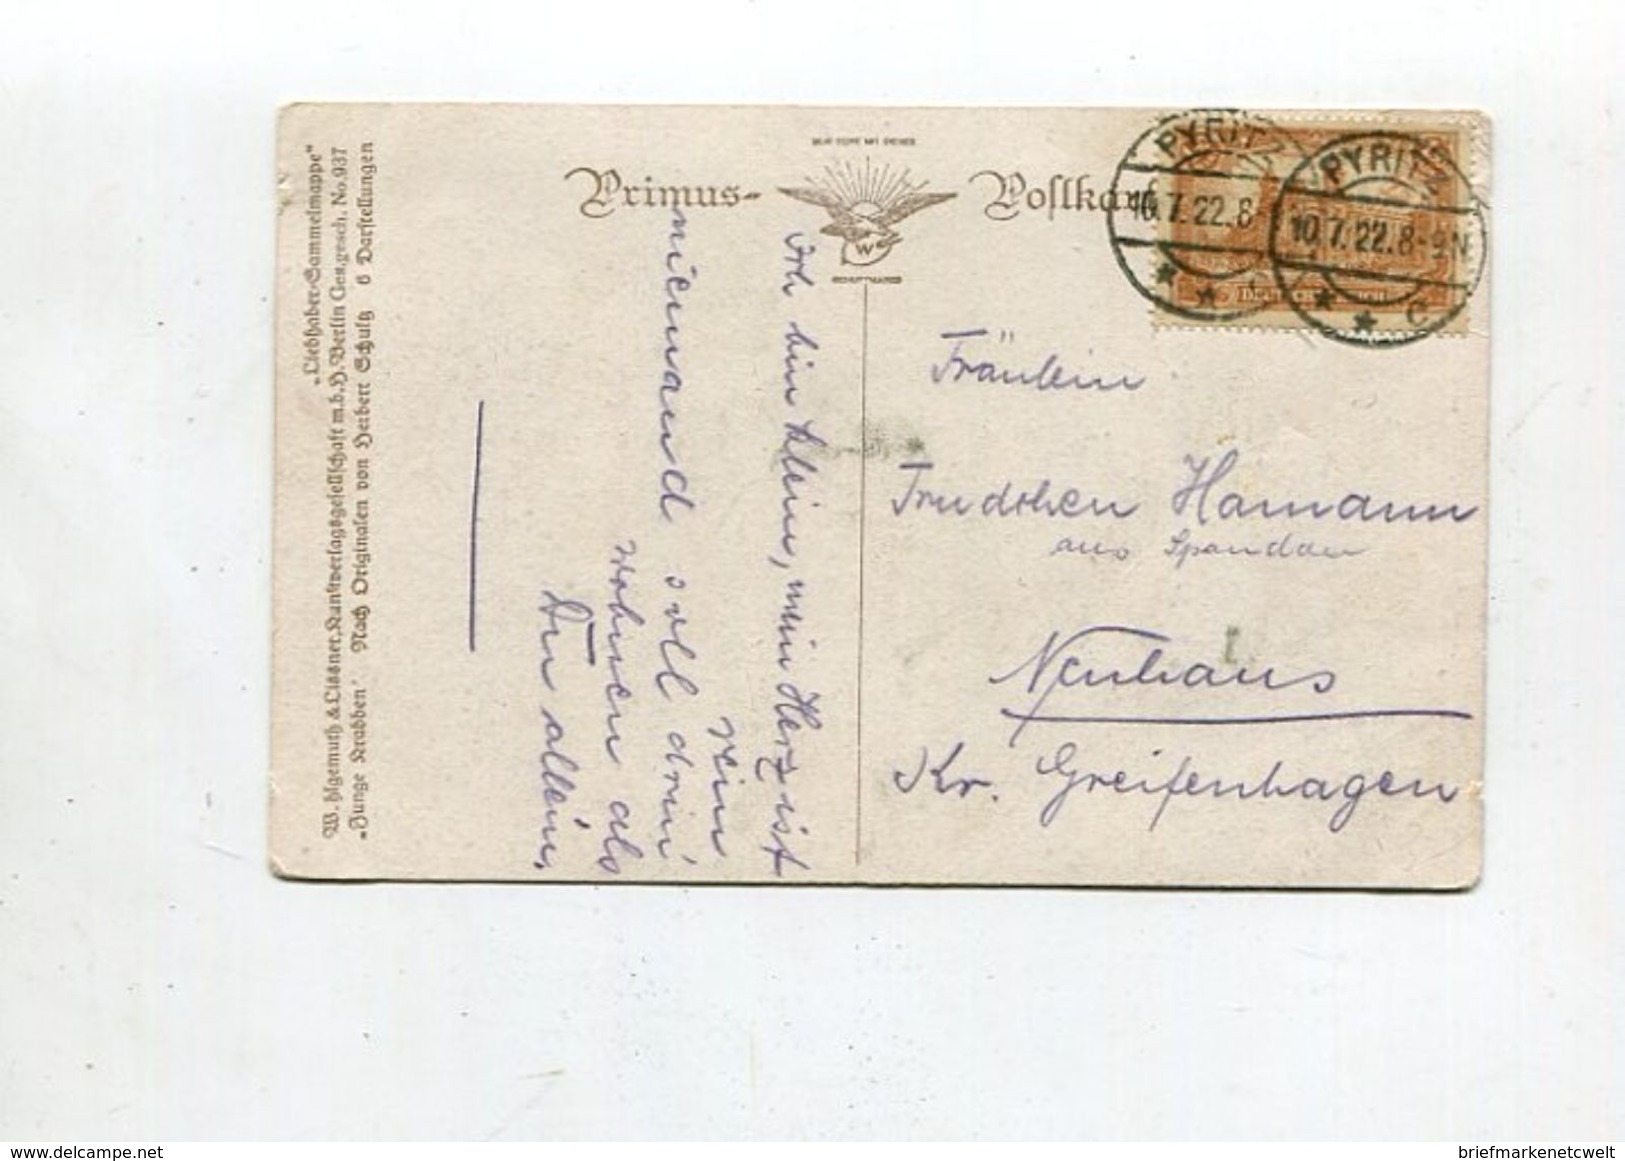 Primus-
Postkar
W
PYRITZ
10.7.22.8-
PYRITZ
10.7.22.8-9N
C
Fräulein
Trudchen Hamann
aus Spandau
Neuhaus
Kr. Greifenhagen
Ich bin klein, mein Herz ist
rein
niemand soll drin
wohnen als
Du allein.
„Liebhaber-Sammelmappe“
W. hlgemuth & Lissner, Kunstverlagsgesellschaft m.b.H. Berlin Ges. gesch. No. 937
„Junge Krabben“ Nach Originalen von Herbert Schulz 6 Darstellungen
delcampe.net
briefmarkenetcwelt